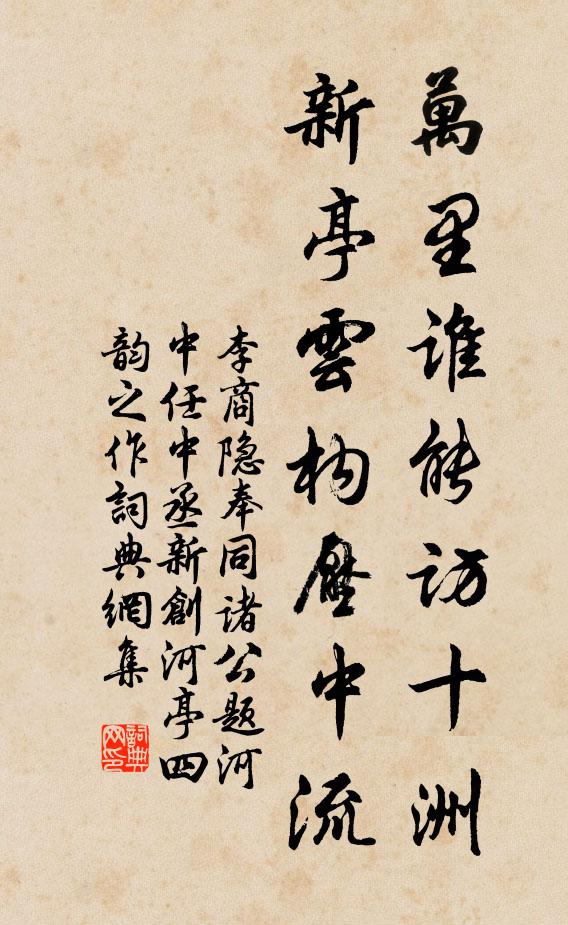 萬里誰能訪十洲
新亭雲构壓中流
李商隐奉同诸公题河
中任中丞新創河亭四
韵之作詞典網集
詞典网印